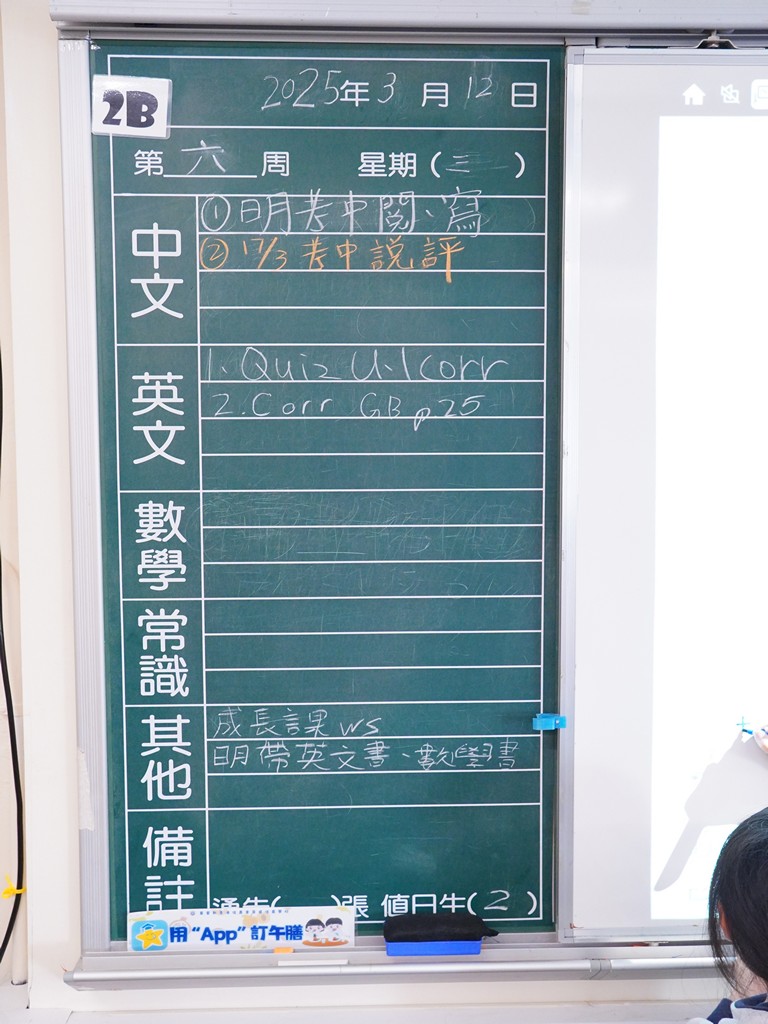 2B
2025年3月12日
第六周 星期(三)
中文
①明考中閱、寫
②17/3考中說評
英文
1. Quiz U.1 corr
2. Corr GB p25
數學
常識
其他
成長課 ws
明帶英文書、數學書
備註
通告( )張 值日生(2)
用“App”訂午膳